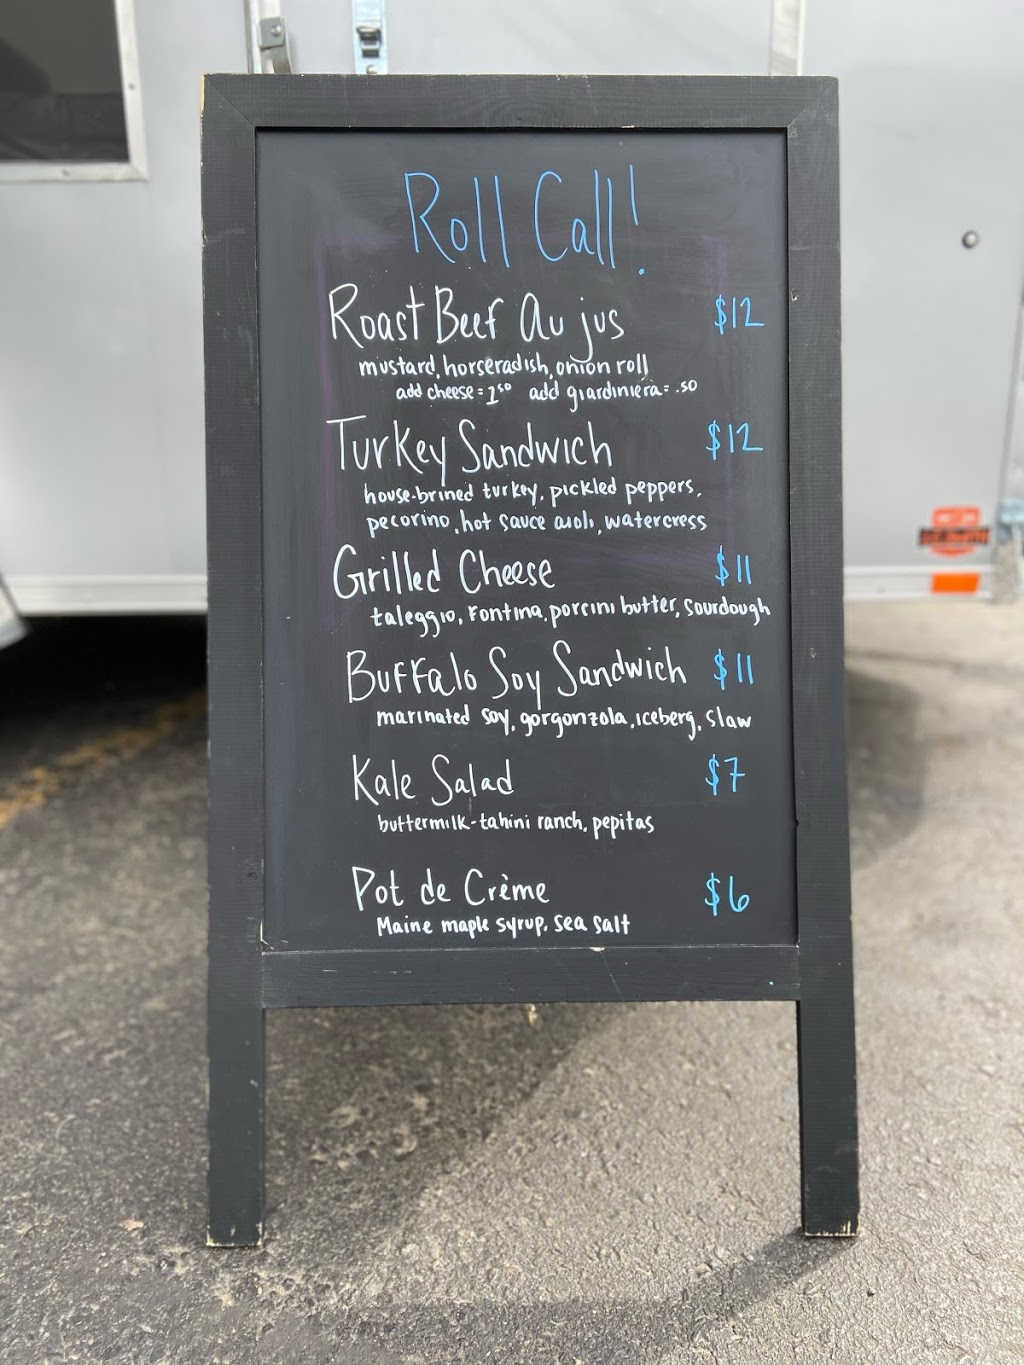 Roll Call!
Roast Beef Au jus $12
mustard, horseradish, onion roll
add cheese = 1⁵⁰ add giardiniera = .50
Turkey Sandwich $12
house-brined turkey, pickled peppers,
pecorino, hot sauce aioli, watercress
Grilled Cheese $11
taleggio, Fontina, porcini butter, sourdough
Buffalo Soy Sandwich $11
marinated soy, gorgonzola, iceberg, slaw
Kale Salad $7
buttermilk-tahini ranch, pepitas
Pot de Crème $6
Maine maple syrup, sea salt